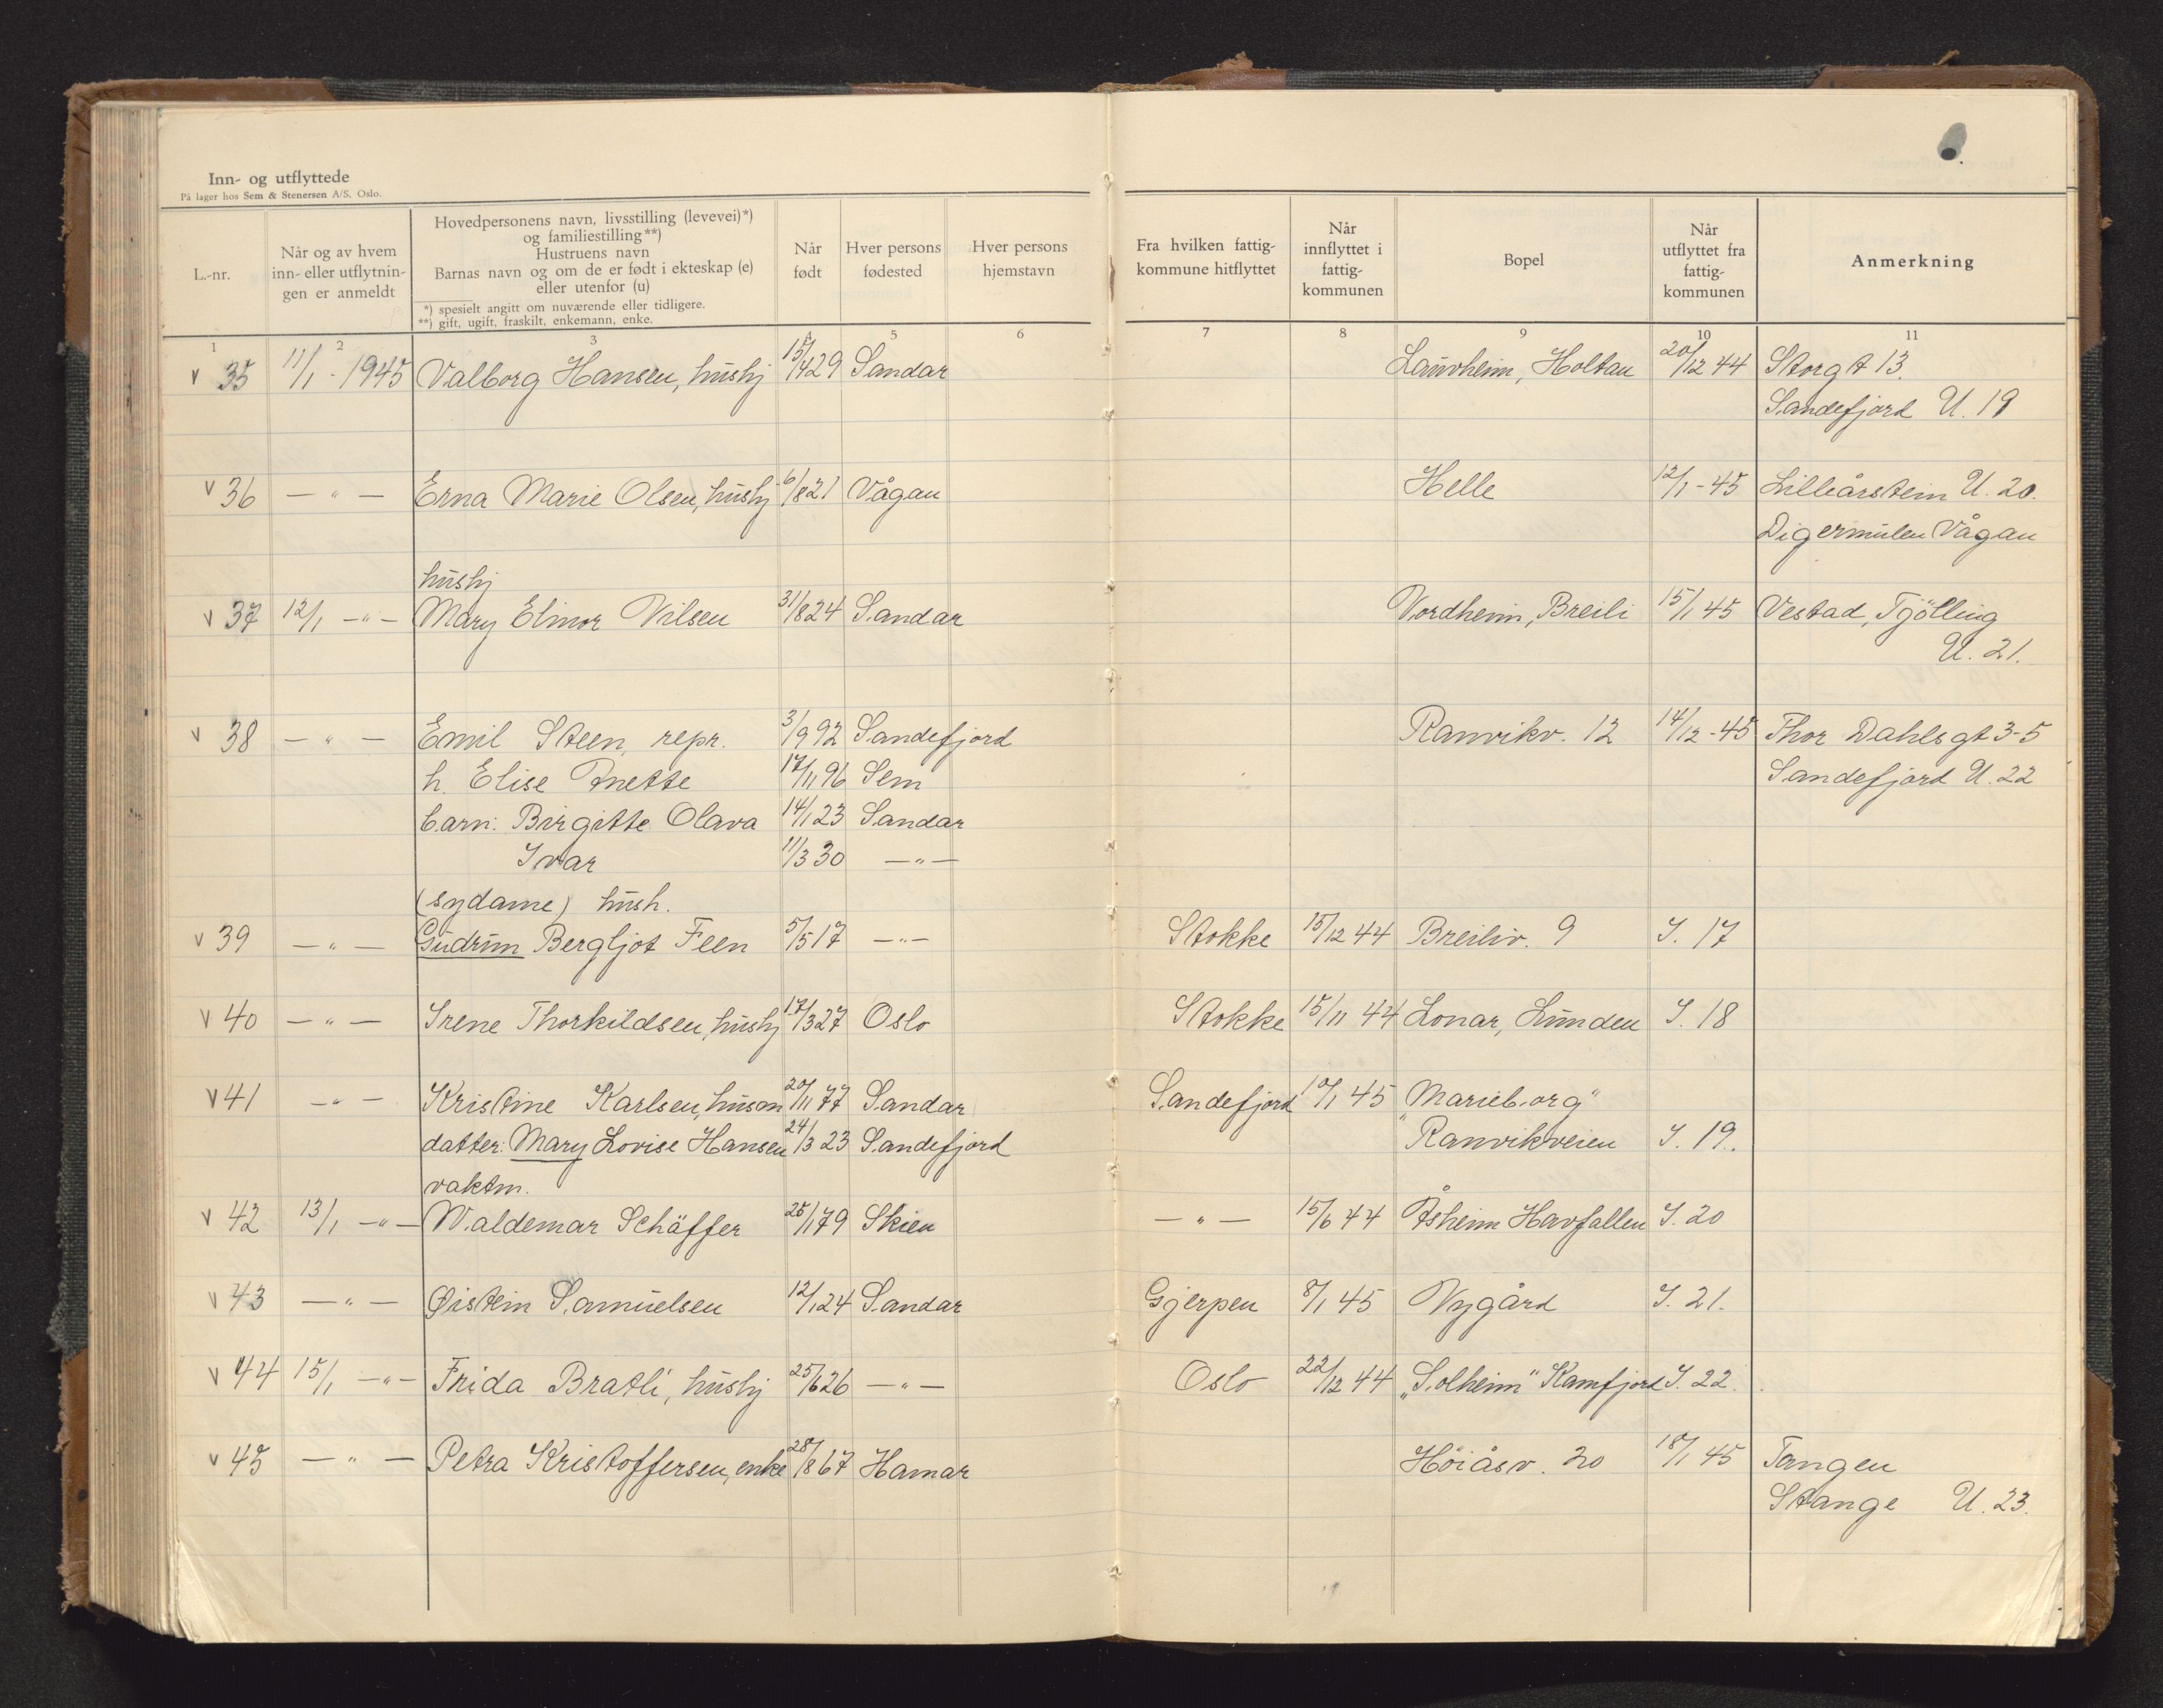 Inn- og utflyttede
På lager hos Sem & Stenersen A/S, Oslo.
L.-nr.
Når og av hvem
inn- eller utflytnin-
gen er anmeldt
Hovedpersonens navn, livsstilling (levevei)*)
og familiestilling**)
Hustruens navn
Barnas navn og om de er født i ekteskap (e)
eller utenfor (u)
*) spesielt angitt om nuværende eller tidligere.
**) gift, ugift, fraskilt, enkemann, enke.
Når
født
Hver persons
fødested
Hver persons
hjemstavn
Fra hvilken fattig-
kommune hitflyttet
Når
innflyttet i
fattig-
kommunen
Bopel
Når
utflyttet fra
fattig-
kommunen
Anmerkning
1 2 3 4 5 6 7 8 9 10 11
v 35 11/1 - 1945 Valborg Hansen, hushj 15/4 29 Sandar Laurheim, Holtan 20/12 44 Storgt 13.
Sandefjord U. 19
v 36 —"— Erna Marie Olsen, hushj 6/8 21 Vågan Helle 12/1 - 45 Lilleårstein U. 20.
Digermulen Vågan
hushj
v 37 12/1 —"— Mary Elinor Nilsen 31/8 24 Sandar Nordheim, Breili 15/1 45 Vestad, Tjölling
U. 21.
v 38 —"— Emil Steen, repr. 3/9 92 Sandefjord Ranvikv. 12 14/12 - 45 Thor Dahls gt 3-5
h. Elise Anette 17/11 96 Sem Sandefjord U. 22
barn: Birgitte Olava 14/1 23 Sandar
Ivar 11/3 30 —"—
(sydame) hush.
v 39 —"— Gudrun Bergljot Feen 5/5 17 —"— Stokke 15/12 44 Breiliv. 9 I. 17
v 40 —"— Irene Thorkildsen, hushj 17/3 27 Oslo Stokke 15/11 44 Lonar, Lunden I. 18
v 41 —"— Kristine Karlsen, husm 20/11 77 Sandar Sandefjord 10/1 45 "Marieborg"
datter: Mary Lovise Hansen 24/3 23 Sandefjord Ranvikveien I. 19.
vaktm.
v 42 13/1 —"— Waldemar Schäffer 25/1 79 Skien —"— 15/6 44 Åsheim Havfallen I. 20
v 43 —"— Øistein Samuelsen 12/1 24 Sandar Gjerpen 8/1 45 Nygård I. 21.
v 44 15/1 —"— Frida Bratli, hushj 25/6 26 —"— Oslo 22/12 44 „Solheim" Kamfjord I. 22.
v 45 —"— Petra Kristoffersen, enke 28/8 67 Hamar Höiåsv. 20 18/1 45 Tangen
Stange U. 23.